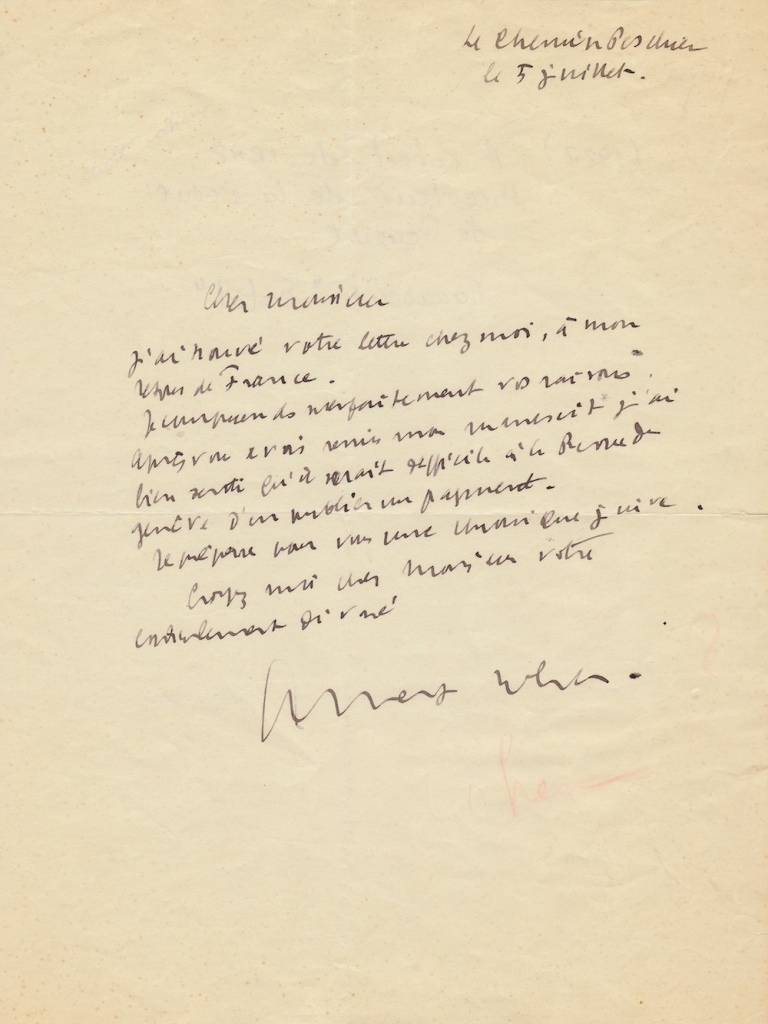 Le Chemin Peschier
le 5 juillet.
Cher monsieur
J'ai trouvé votre lettre chez moi, à mon
retour de France.
Je comprends parfaitement vos raisons.
Après vous avoir remis mon manuscrit j'ai
bien senti qu'il serait difficile à la Revue de
Genève d'en publier un fragment.
Je prépare pour vous une chronique juive.
Croyez moi cher Monsieur votre
cordialement dévoué
Albert Cohen.